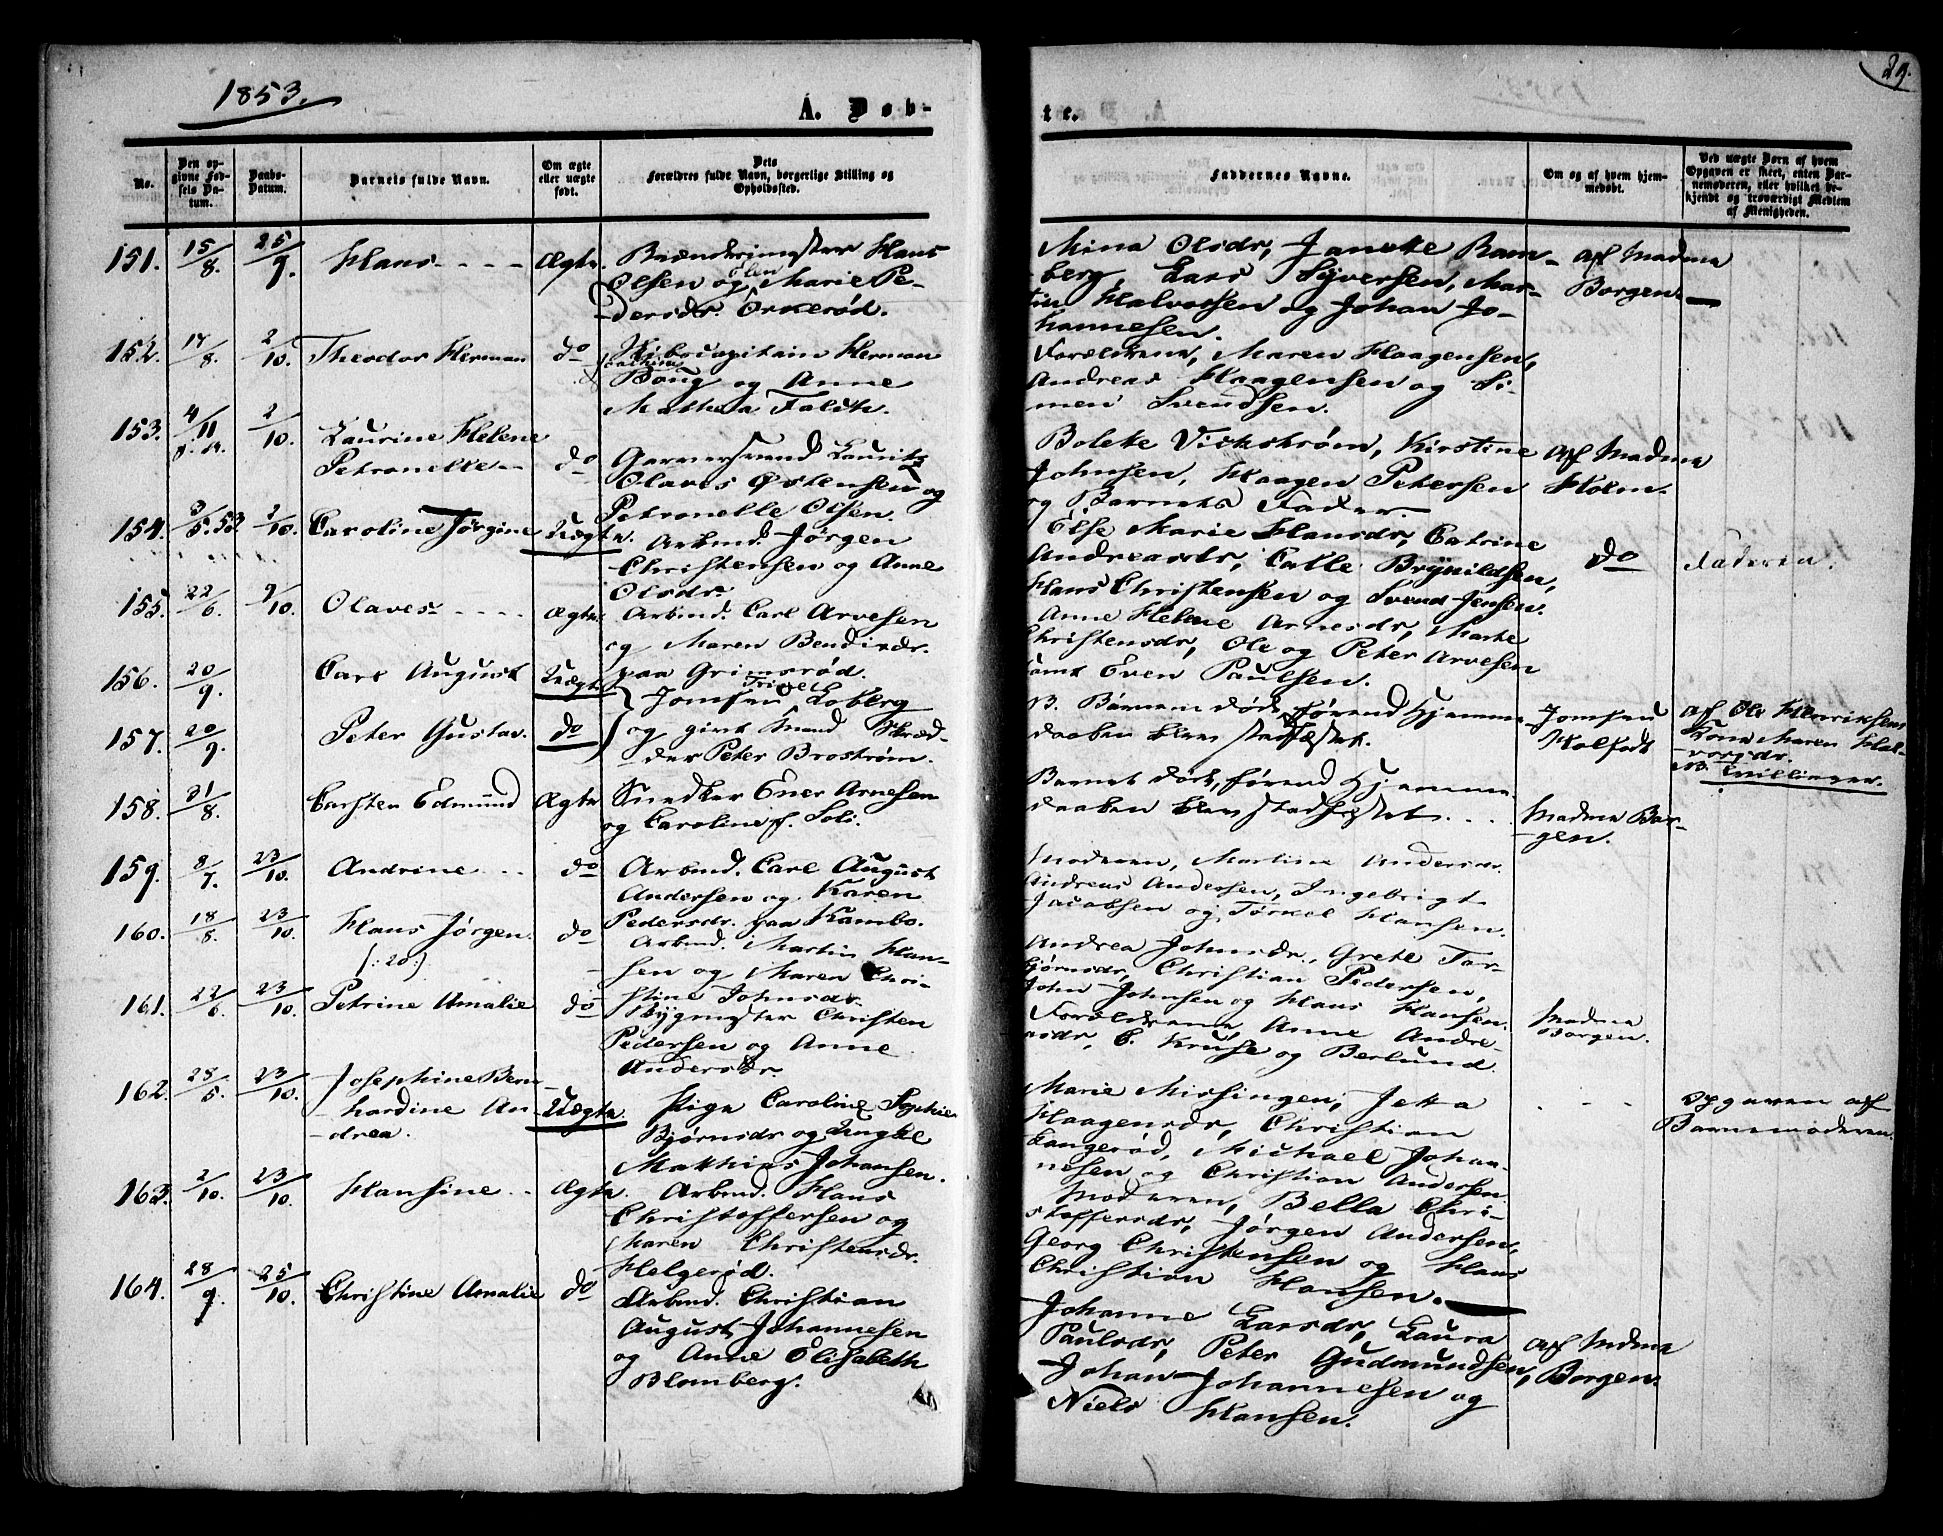 1853.
A. Døb-
te.
29.
No.
Den op-
givne Fød-
sels Da-
tum.
Daabs-
Datum.
Barnets fulde Navn.
Om ægte
eller uægte
født.
Dets
Forældres fulde Navn, borgerlige Stilling og
Opholdssted.
Faddernes Navne.
Om og af hvem hjem-
medøbt.
Ved uægte Børn af hvem
Opgaven er skeet, enten Bar-
nemoderen, eller hvilket be-
kjendt og troværdigt Medlem
af Menigheden.
151. 15/8. 25/9. Hans Ægte.
Brænderimester Hans
Olsen og Elen Marie Pe-
dersdr. Orkerød.
Mina Olsdr, Janike Ram-
berg, Lars Syversen, Mar-
tin Halvorsen og Johan Jo-
hannesen.
af Madme
Borgen
152. 17/8. 2/10. Theodor Herman do
Skibscapitain Herman
Boug og Anne
Mathea Foldth.
Forældrene, Maren Haagensen,
Andreas Haagensen og Si-
men Svendsen.
153. 4/11 2/10. Laurine Helene
Petronelle do
Garversvend Laurits
Olaves Østensen og
Petronelle Olsen.
Bolete Vickstrøm, Kirstine
Johnsen, Haagen Petersen
og Barnets Fader.
af Madme
Holm.
154. 3/5. 53 2/10. Caroline Jørgine Uægte.
Arbmd. Jørgen
Christensen og Anne
Olsdr.
Else Marie Hansdr, Catrine
Andreasdr, Calle Brynildsen,
Hans Christensen og Svend Jensen.
do
Faderen.
155. 22/6. 9/10. Olaves Ægte
Arbmd. Carl Arvesen
og Maren Bendixdr.
paa Grimsrød.
Anne Helene Arnesdr, Marte
Christensdr, Ole og Peter Arvesen
samt Even Paulsen.
156. 20/9. Carl August Uægte
157. 20/9. Peter Gustav. do
Jomfru Loberg
og givt Mand Skræd-
der Peter Brostrøm.
N. Børnene døde førend Hjemme-
daaben blev stadfæstet.
Jomfru
Holfodt
af Ole Henriksens
Kone Maren Hal-
vorsdr.
NB. Tvillinger.
158. 31/8. Carsten Edmund Ægte
Snedker Ener Arnesen
og Caroline f. Soli.
Barnet døde, førend Hjemme
daaben blev stadfæstet.
Madme Bor-
gen.
159. 8/7. 23/10. Andrine do
Arbmd. Carl August
Andersen og Karen
Pedersdr. paa Kambo.
Moderen, Martine Andersdr.
Andreas Andersen, Ingebrigt
Jacobsen og Torkel Hansen.
160. 18/8. 23/10. Hans Jørgen. do
(: 20 :)
Arbmd. Martin Han-
sen og Maren Chri-
stine Johnsdr.
Andrea Johnsdr., Grete Tor-
bjørnsdr, Christian Pedersen,
John Johnsen og Hans Hansen.
161. 22/6. 23/10. Petrine Amalie do
Bygmester Christen
Pedersen og Anne
Andersdr.
Forældrene Anne Andre-
asdr, C. Kruse og Berlund
Madme
Borgen.
162. 28/5. 23/10. Josephine Bern-
hardine An-
drea. Uægte.
Pige Caroline Sophie
Bjørnsdr og Ungkl
Mathias Johansen.
Marie Missingen, Jetta
Haagensdr, Christian
Tangerød, Michael Johan-
nesen og Christian Andersen.
Opgaven af
Barnemoderen.
163. 2/10. 23/10. Hansine Ægte.
Arbmd. Hans
Christoffersen og
Maren Christensdr.
Helgerød.
Moderen, Bella Chri-
stoffersdr, Jørgen Andersen,
Georg Christensen og Hans
Christian Hansen.
164. 28/9. 25/10. Christine Amalie do
Arbmd. Christian
August Johannesen
og Anne Elisabeth
Blomberg.
Johanne Larsdr, Laura
Paulsdr, Peter Gudmundsen,
Johan Johannesen og
Niels Hansen.
af Mdme
Borgen.